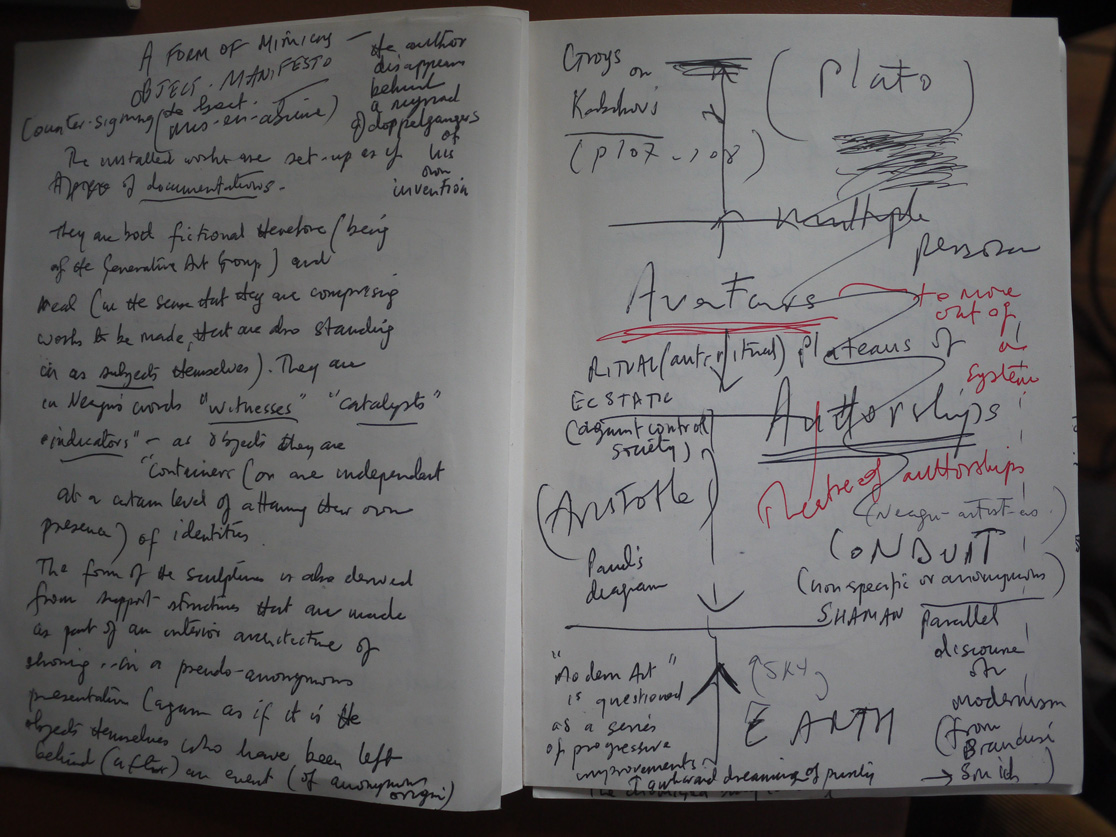 A FORM OF MIMICRY —
OBJECT. MANIFESTO
the author
disappears
behind
a myriad
of doppelgangers
of
his
own
invention
Counter-signing (the beast.
mis-en-abime)
The installed works are set-up as if
of documentations.
They are both fictional therefore (being
of the Generative Art Group) and
real (in the sense that they are comprising
works to be made, that are also standing
in as subjects themselves). They are
in Neagu's words "witnesses" "catalysts"
"indicators" – as objects they are
"Containers (or are independent
at a certain level of attaining their own
presence) of identities
The form of the sculptures is also derived
from support-structures that are made
as part of an interior architecture of
showing .. in a pseudo-anonymous
presentation (again as if it is the
objects themselves who have been left
behind (after) an event (of anonymous
origin)
Groys
on
Kabakov's
(p107 - 108)
(Plato)
multiple
persona
Avatars
to move
out of
a
system
RITUAL (anti-ritual) Plateaus of
ECSTATIC
(adjunct control
society)
Authorships
Theatre of authorships
(Aristotle)
(Neagu-artist-as)
CONDUIT
(non specific or anonymous)
SHAMAN
Paul's
diagram
Parallel
discourse
of
modernism
(from
Brancusi
→ Smith)
"Modern Art"
is questioned
as a series
of progressive
improvements
SKY
EARTH
awkward dreaming of purity